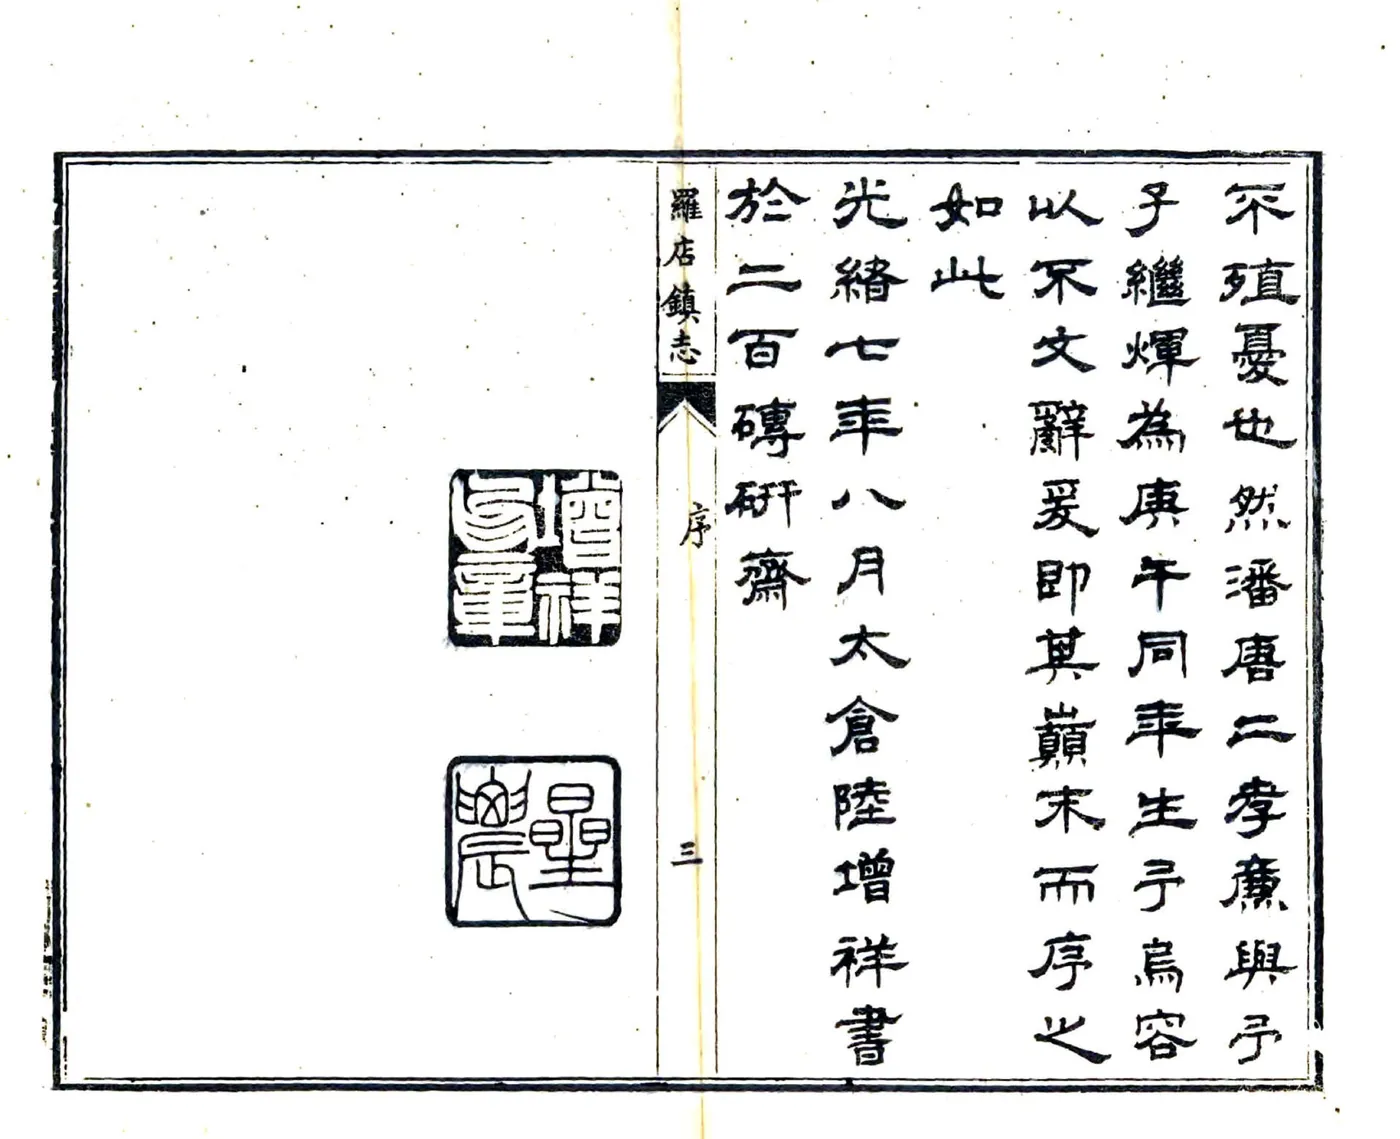 不殖憂也然潘唐二孝廉與予
子繼煇為庚午同年生予烏容
以不文辭爰即其巔末而序之
如此
光緒七年八月太倉陸增祥書
於二百磚硏齋
羅店鎮志
序
三
增祥
印章
星農